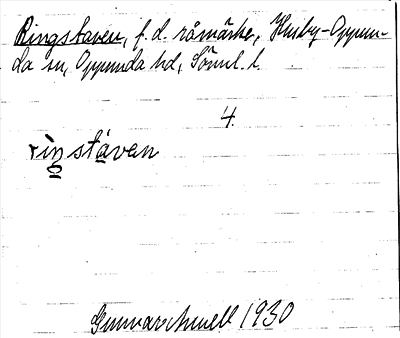 Ringstaven, f.d. råmärke, Husby-Oppun-
da sn, Oppunda hd, Söml. l.
4
rinstáven
Gunnar Amell 1930